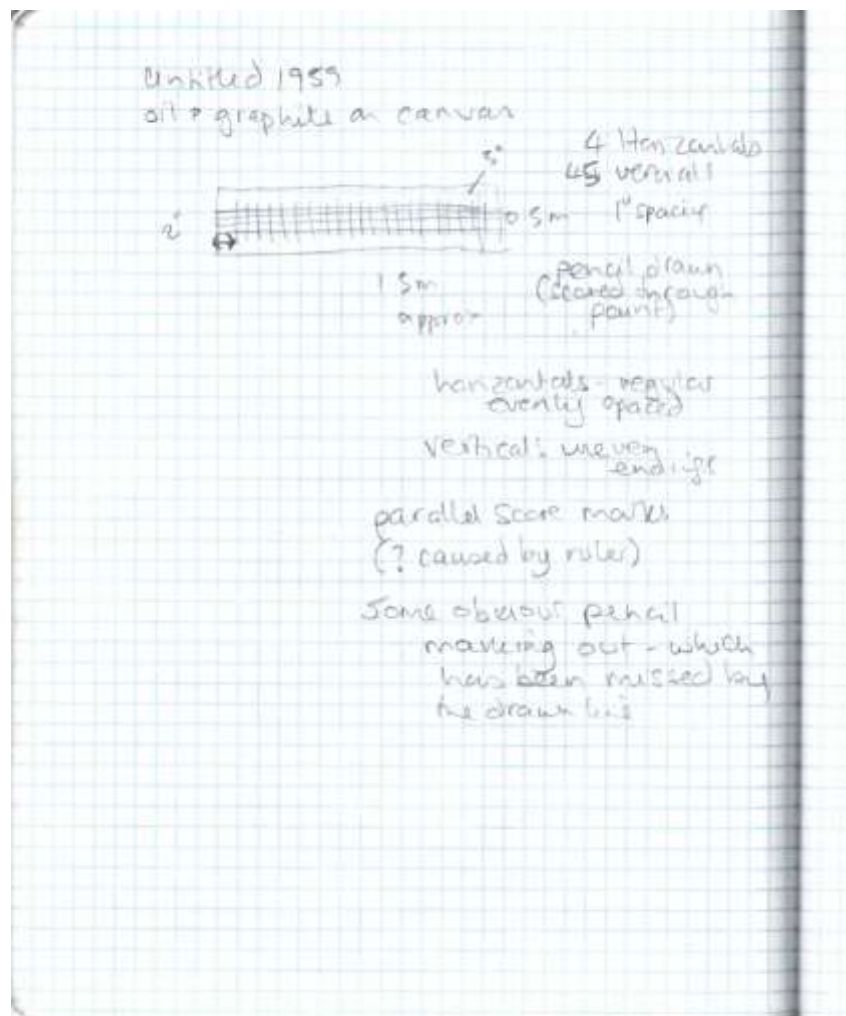 Untitled 1959
oil + graphite on canvas
4 Horizontals
45 verticals
1" spacing
5"
2"
0.5m
1.5m
approx
pencil drawn
(scored through
paint)
horizontals - regular
evenly spaced
vertical: uneven
endings
parallel score marks
(? caused by ruler)
Some obvious pencil
marking out - which
has been missed by
the drawn line